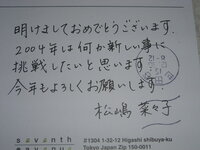 明けましておめでとうございます.
2004年は何か新しい事に
挑戦したいと思います.
今年もよろしくお願いします.
松嶋菜々子
seventh
avenue
〒1304 1-32-12 Higashi shibuya-ku
Tokyo Japan Zip 150-0011